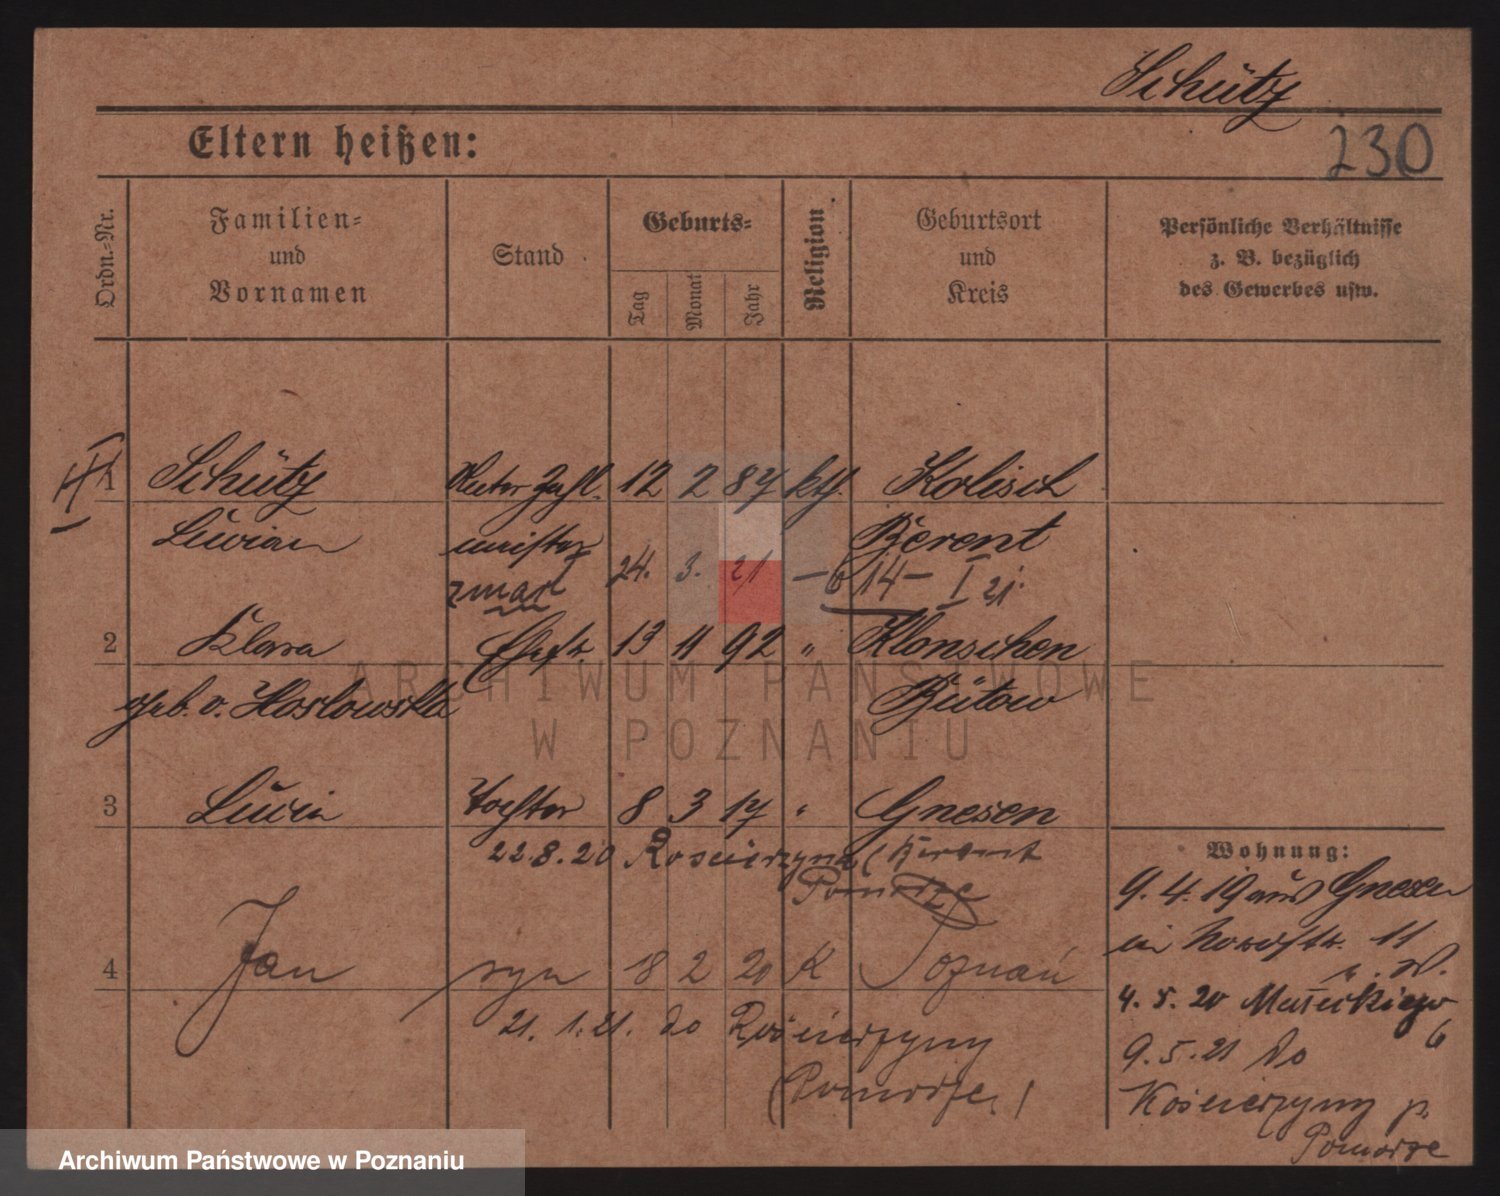 Schütz
Eltern heißen:
230
Ordn.-Nr.
Familien-
und
Vornamen
Stand
Geburts-
Tag
Monat
Jahr
Religion
Geburtsort
und
Kreis
Persönliche Verhältnisse
z. B. bezüglich
des Gewerbes usw.
1 Schütz 12 2 87 kth. Kolisch
Lucian Berent
zmarł 24. 3. 21 — 14 — I 21.
2 Klara Ehefr. 13 11 92 " Klonschen
geb. v. Koslowska Bütow
3 Lucia Tochter 8 3 17 " Gnesen
22.8.20 Kościerzyna (Berent
Pomorze
4 Jan syn 18 2 20 K Poznań
21. 1. 21. do Kościerzyny
(Pomorze)
Wohnung:
9. 4. 19 aus Gnesen
in 11
4. 5. 20 Małeckiego
6
9. 5. 21 do
Kościerzyny p.
Pomorze
ARCHIWUM PAŃSTWOWE
W POZNANIU
Archiwum Państwowe w Poznaniu